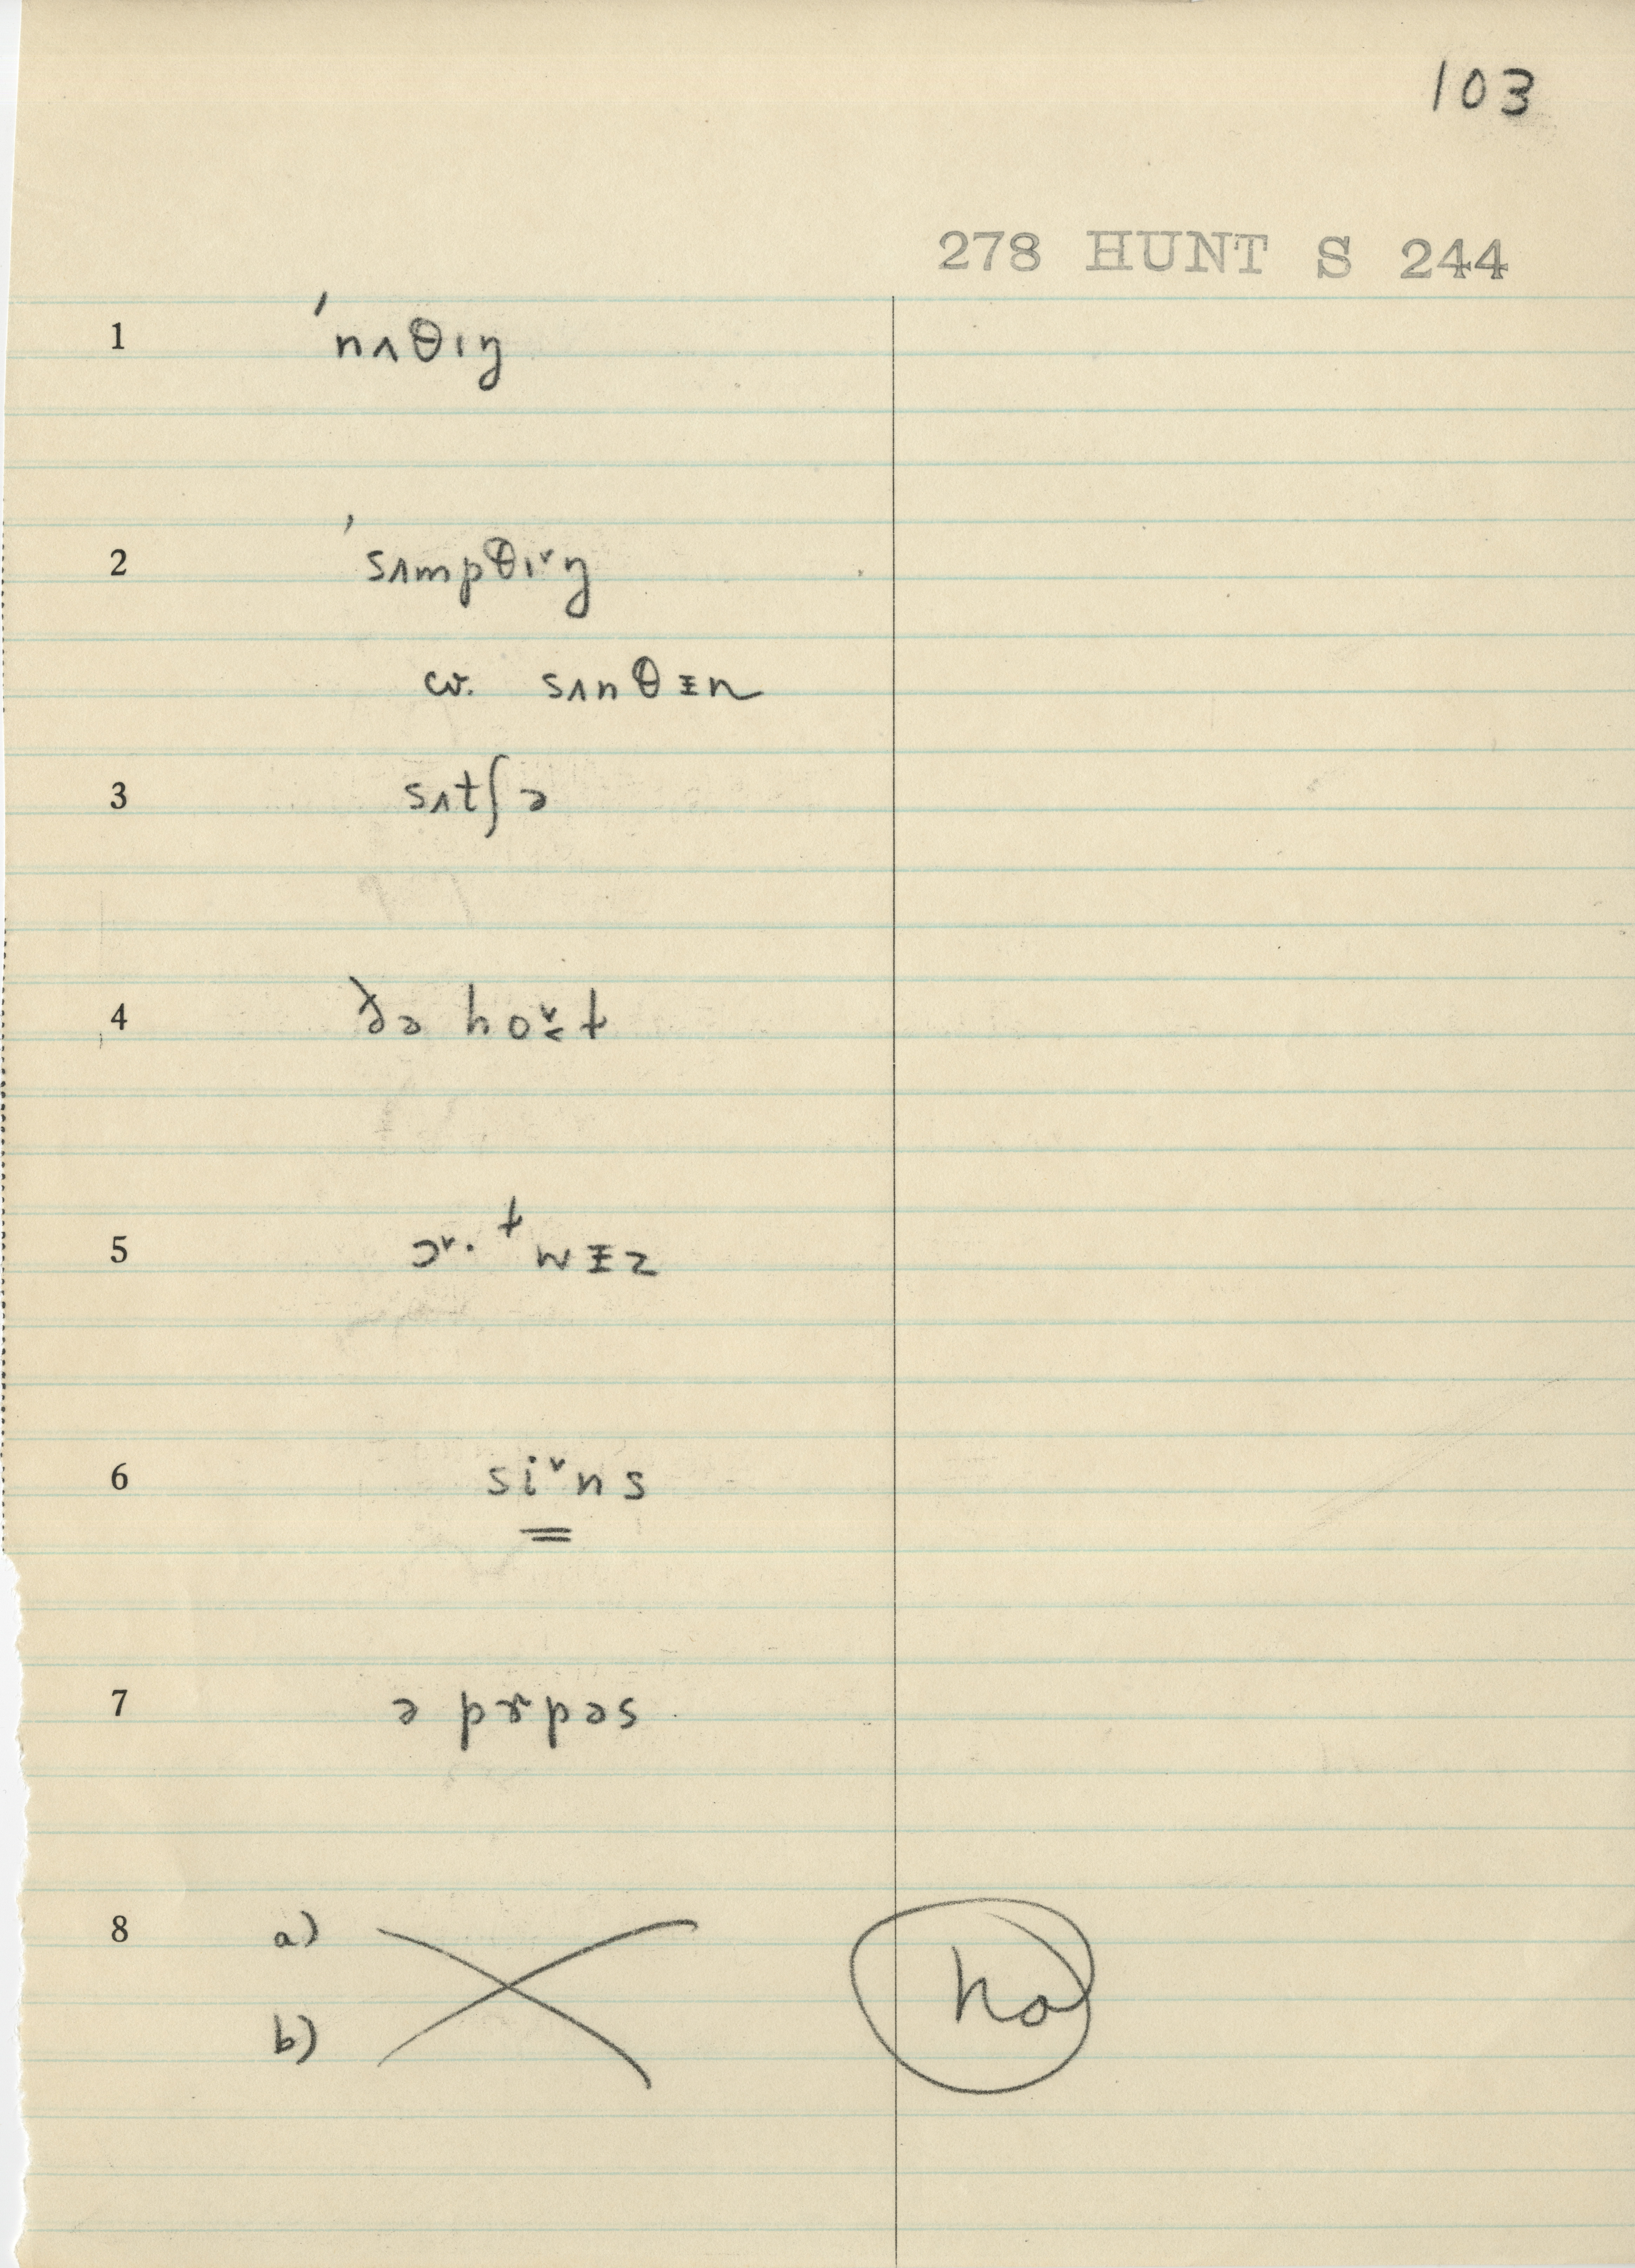 103
278 HUNT S 244
1 ˈnʌθɪŋ
2 ˈsʌmpθɪ˅ŋ
cv. sʌnθɪ̵n
3 sʌtʃə
4 ðə ho˅t
5 ɔ˅· ᵗwɪ̵z
6 si˅ns
7 ə pɝpəs
8 a)
b)
no